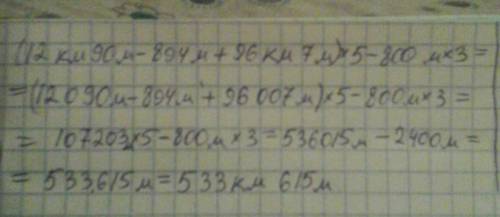 (12 км 90м-894м+96 км 7 м)×5-800 м×3=
=(12 090м-894м+96 007м)×5-800м×3=
= 107203×5-800м×3=536015м-2400м=
= 533,615м=533км 615м